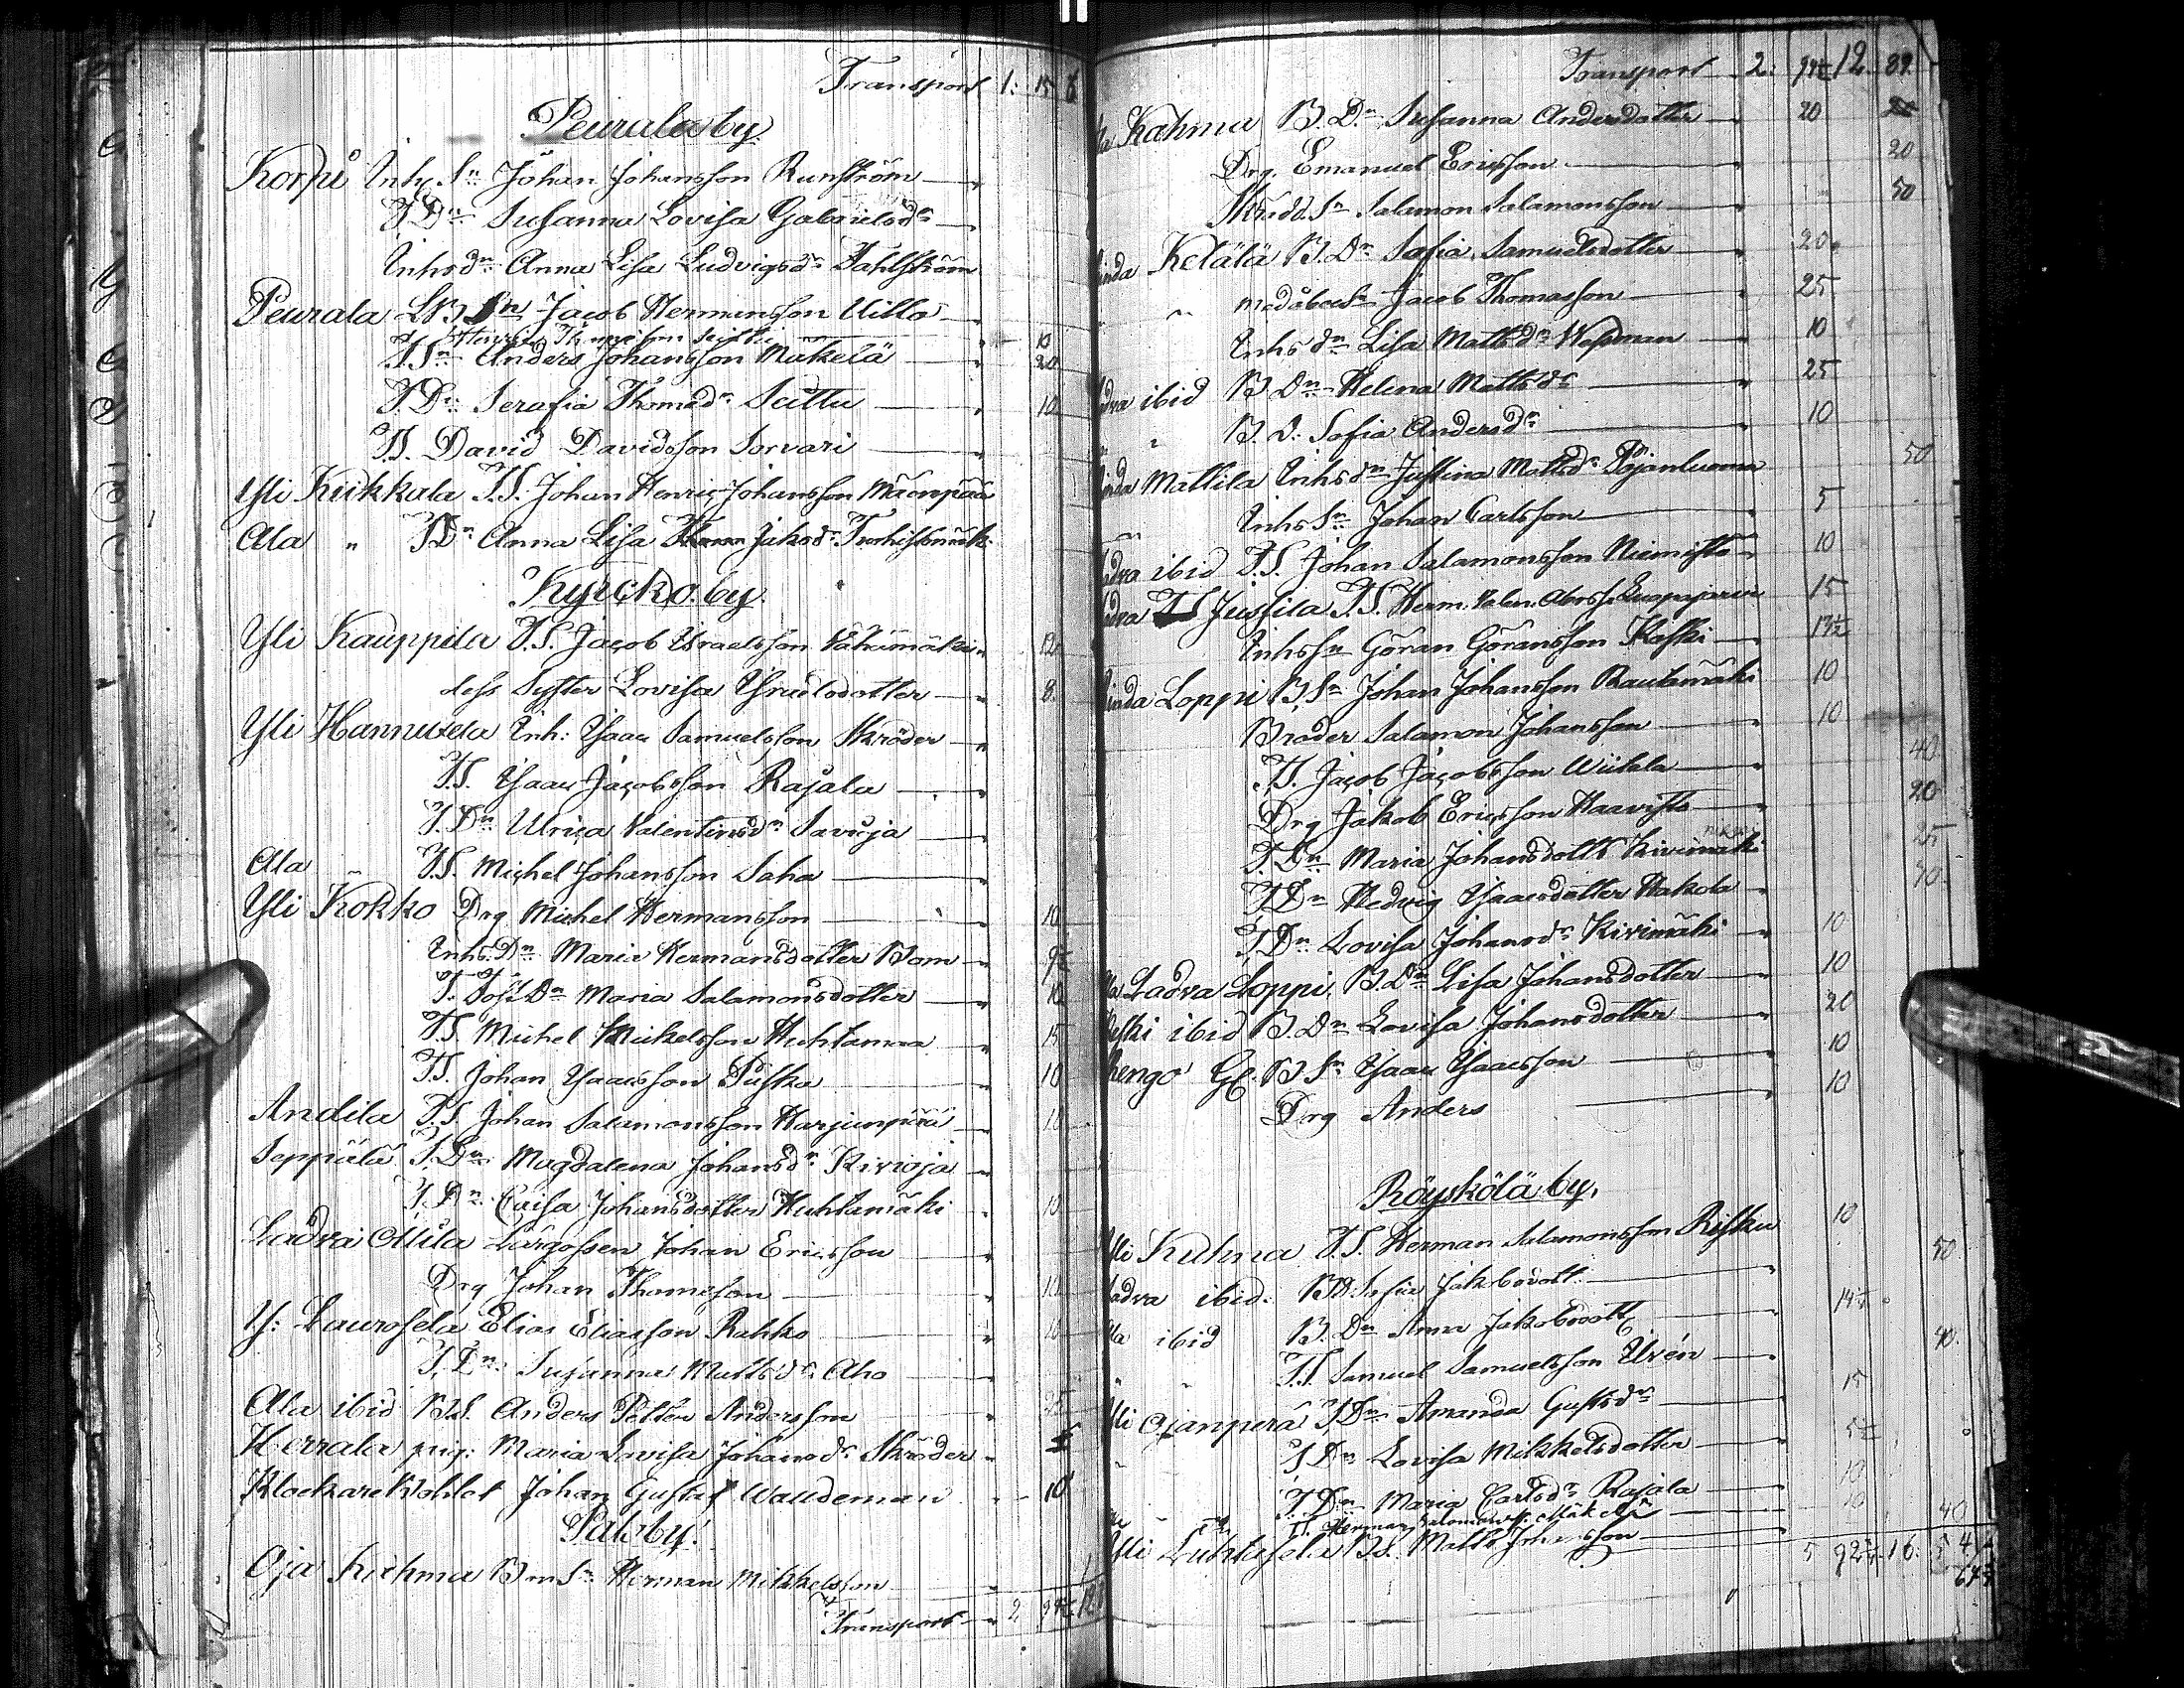 Transport 1: 15
Peurala by
Korpi Inh. Sn Johan Johansson Runström
T. Dn Susanna Lovisa Gabrielsdr
Inhsdn Anna Lisa Ludvigsdr Dahlström
Peurala Sn Jacob Hermansson Uitto
Henric Thomasson Seittu 10
T. Sn Anders Johansson Mäkelä 20
T. Dn Serafia Thomasdr Seittu 10
T.S. David Davidsson Sorvari
Yli Kukkala T.S. Johan Henric Johansson Mäenpää
Ala " T Dn Anna Lisa Jakosdr
Kyrcko by.
Yli Kauppila T.S. Jacob Israelsson Vähämäki 12
dess Syster Lovisa Israelsdotter 8.
Yli Hannuxela Inh: Isaac Samuelsson Skräder
T.S. Isaac Jacobsson Rajala
T. Dn Ulrica Valentinsdr Savioja
Ala " T.S. Michel Johansson Saha
Yli Kokko Drg Michel Hermansson 10
Inhs. Dn Maria Hermansdotter Bom
T. Dn Maria Salamonsdotter
T.S Michel Mickelsson Huhtamaa 15
T.S. Johan Isaacsson Puska 10
Andila T.S Johan Salamonsson Harjunpää 10
Seppälä T. Dn Magdalena Johansdr Kivioja
T. Dn Caisa Johansdotter Huhtamäki 10
Ladva Ollila Johan Ericsson
Drg Johan Thomasson 10
Y: Laurosela Elias Eliasson Rahko 10
T. Dn Susanna Mattsdr Aho
Ala ibid Anders Petter Andersson 25
Herrala pig: Maria Lovisa Johansdr Skräder
Klockare Bohlet Johan Gustaf Waudeman 10
Palo by.
Oja Kuhma Bm Sn Herman Mikkelsson
Transport 2
Transport 2: 12 89.
Kahma B. Dn Susanna Andersdotter 20
Drg. Emanuel Ericsson 20
Skrädd. Sn Salamon Salamonsson 50
Kelälä B. Dn Sofia Samuelsdotter 20
" medåboSn Jacob Thomasson 25
Inhs dn Lisa Mattsdr Wesman 10
ibid B Dn Helena Mattsdr 25
" B. D. Sofia Andersdr 10
Mattila Inhs dn Justina Mattsdr Pojanluoma 50
" Inhs Sn Johan Carlsson 5
ibid T.S. Johan Salamonsson Niemistö 10
Jussila T.S. Herm. Valen. Luopajärvi 15
Inhs Sn Göran Göransson Koski
Loppi B. Sn Johan Johansson Rautamäki 10
Broder Salamon Johansson 10
T.S. Jacob Jacobsson Wiitala 40
Drg Jakob Ericsson Haavisto 20
T. Dn Maria Johansdotter Kivimäki 25
T Dn Hedvig Isaacsdotter Hakola
T. Dn Lovisa Johansdr Kivimäki 10
Ladva Loppi B. Dn Lisa Johansdotter 10
ibid B. Dn Lovisa Johansdotter 20
B Sn Isaac Isaacsson 10
Drg Anders 10
Röyskölä by.
Yli Kuhna T.S. Herman Salamonsson Risku 10
ibid. Sofia Jakobsdott. 50
ibid B. Dn Anna Jakobsdott
T.S Samuel Samuelsson Uvén
Yli Ojanperä T Dn Amanda Gustsdr 15
" T Dn Lovisa Mikkelsdotter
T. Dn Maria Carlsdr Rajala 10
T.S. Herman Salamonss. Mäkelä 10
Yli Luhtasela Bs. Matts 40
5 16.